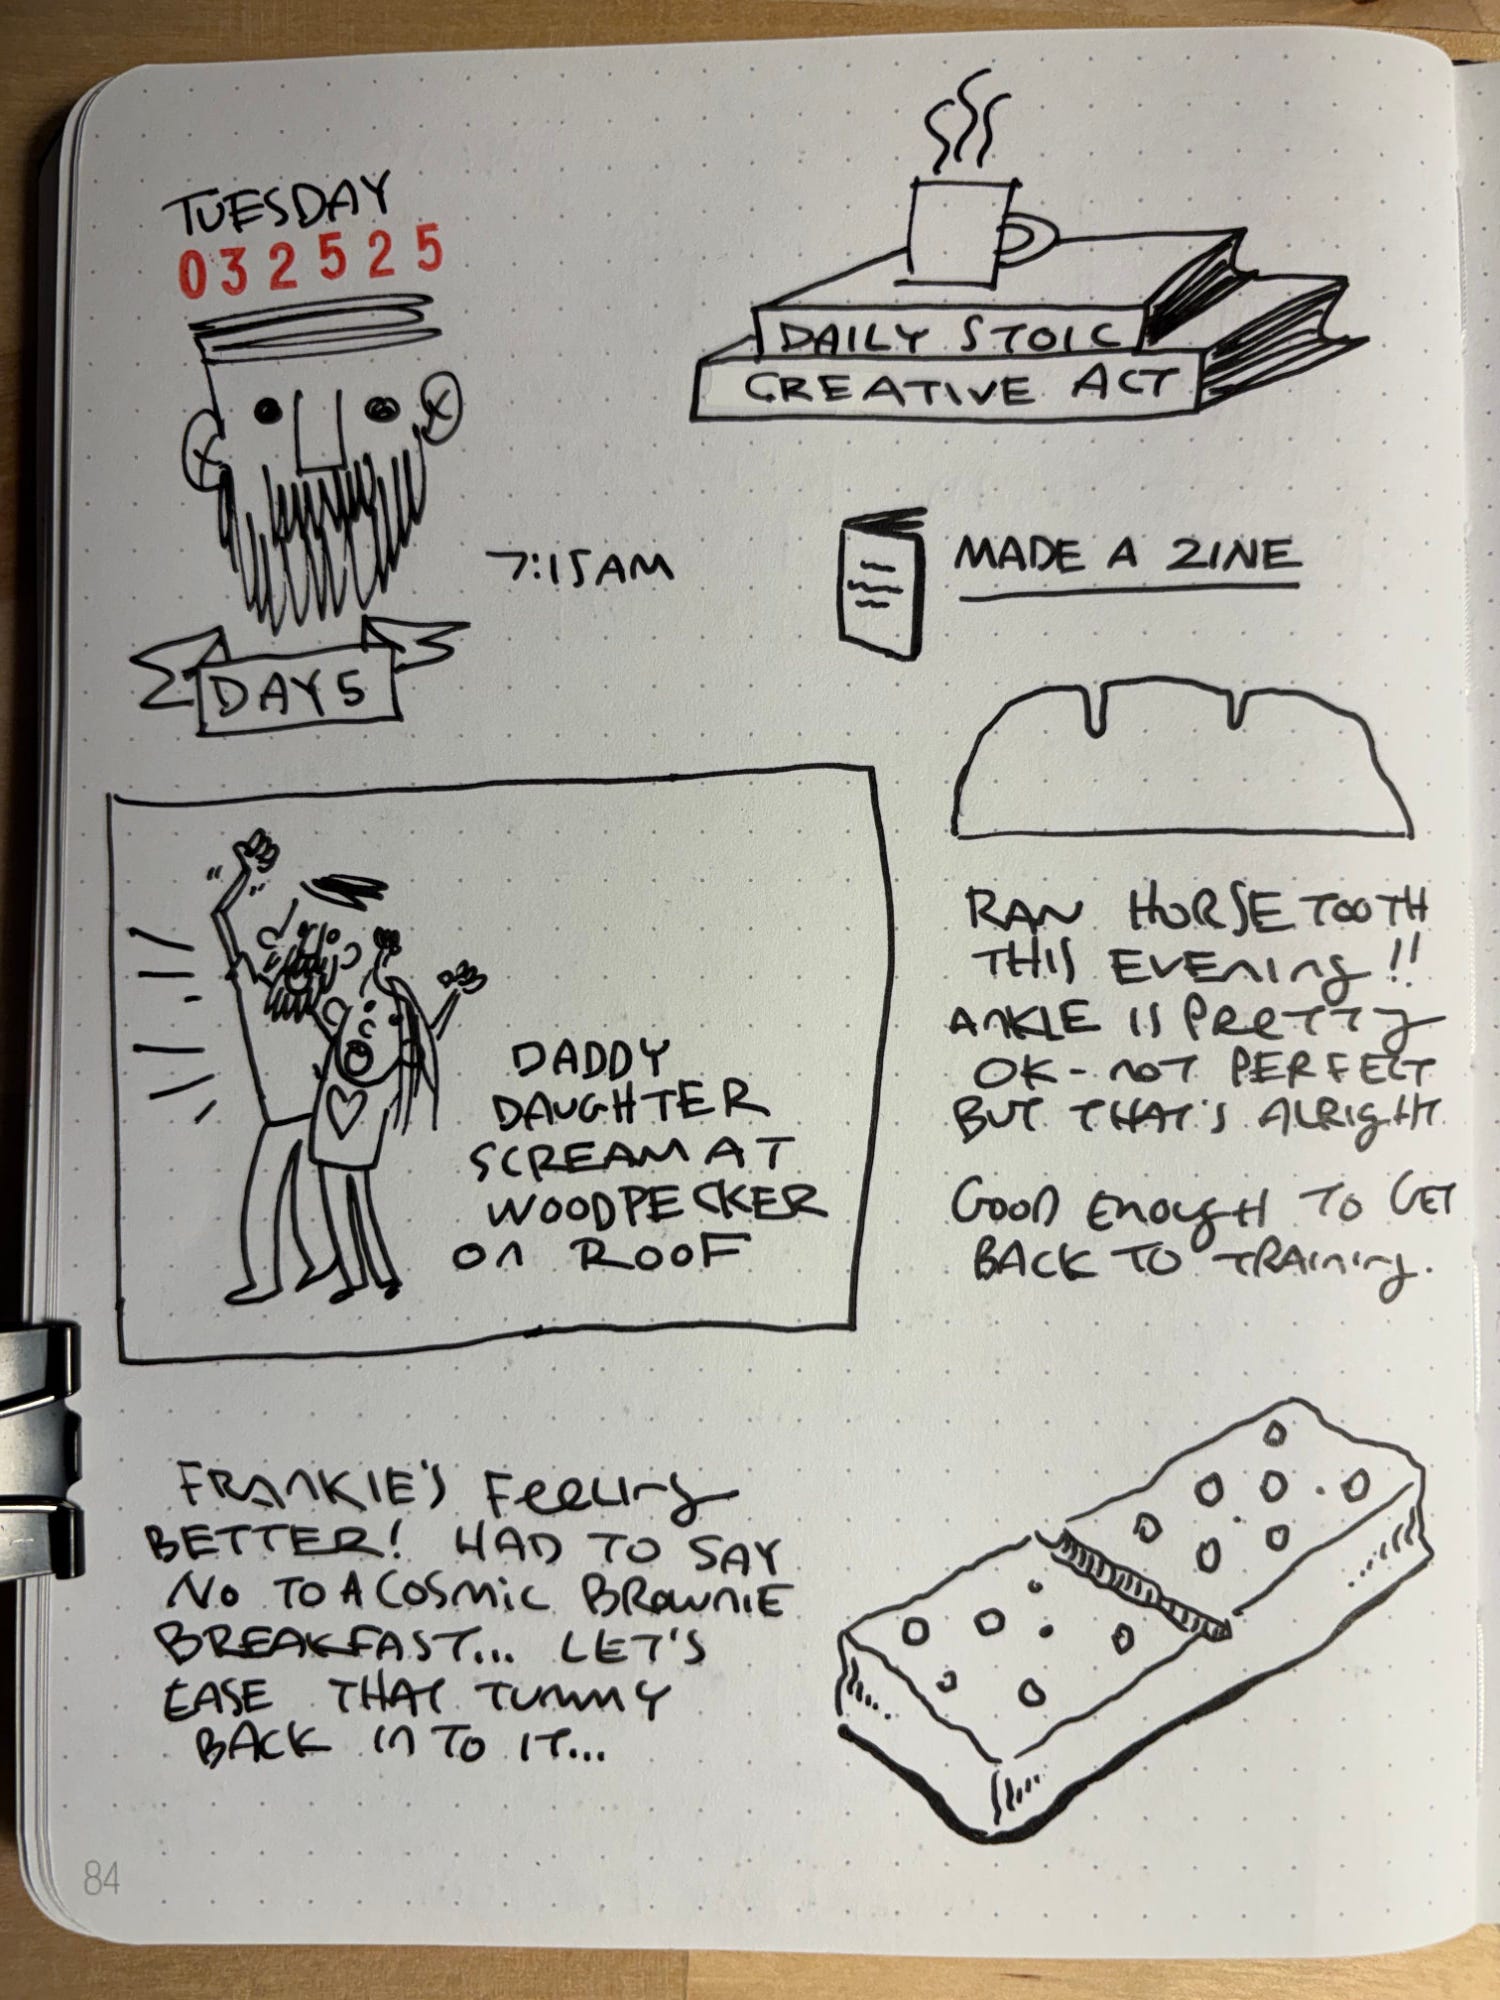 TUESDAY
032525
DAILY STOIC
CREATIVE ACT
7:15AM
MADE A ZINE
DAY 5
RAN HORSETOOTH
THIS EVENING!!
ANKLE IS PRETTY
OK - NOT PERFECT
BUT THAT'S ALRIGHT
GOOD ENOUGH TO GET
BACK TO TRAINING.
DADDY
DAUGHTER
SCREAM AT
WOODPECKER
ON ROOF
FRANKIE'S FEELING
BETTER! HAD TO SAY
NO TO A COSMIC BROWNIE
BREAKFAST... LET'S
EASE THAT TUMMY
BACK INTO IT...
84